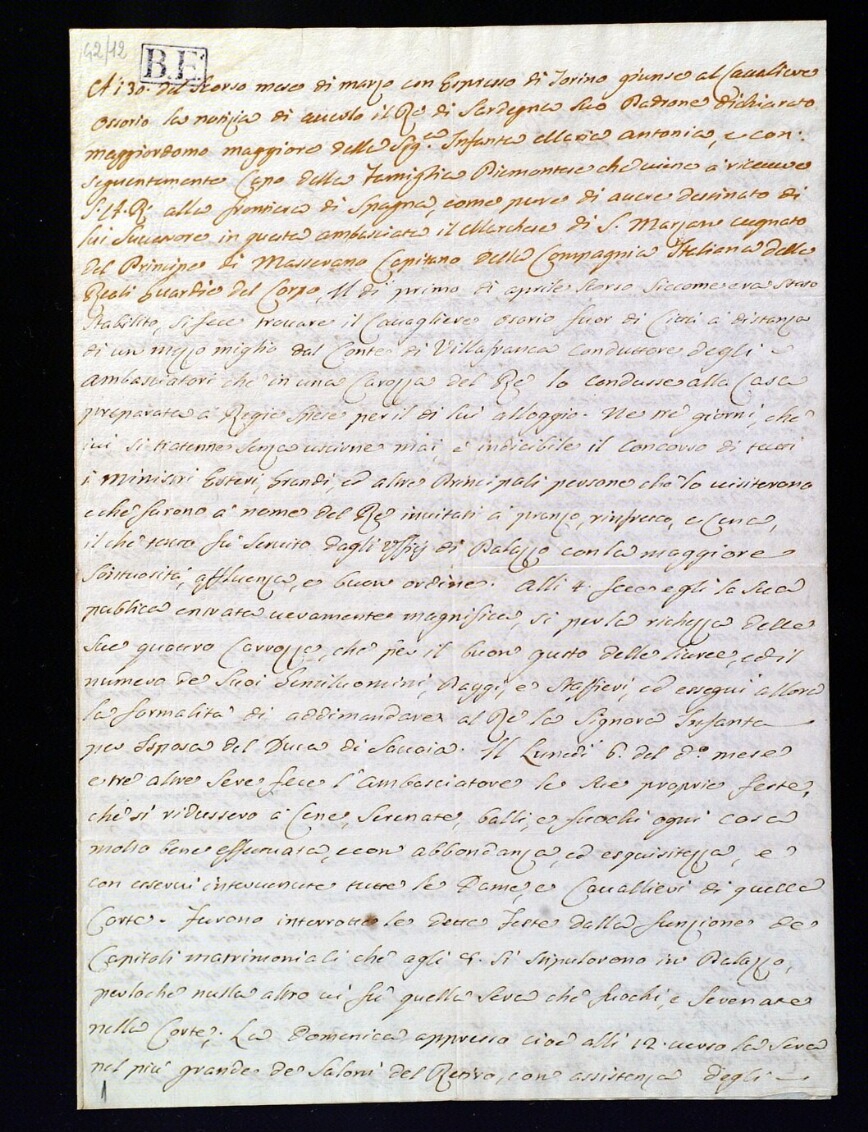 42/12
B.F.
A i 30. del scorso mese di marzo con Espresso di Torino giunse al Cavaliere
Ossorio la notizia di averlo il Rè di Sardegna suo Padrone dichiarato
maggiordomo maggiore della Infanta Maria Antonia, e con:
seguentemente Capo della Famiglia Piemontese che viene a ricevere
S. A. Rle alla frontiera di Spagna, come pure di avere destinato di
lui Successore in questa ambasciata il Marchese di S. Marzan cugnato
del Principe di Masserano Capitano della Compagnia Italiana delle
Reali Guardie del Corpo, Il di primo di aprile scorso siccome era stato
stabilito, si fece trovare il Cavagliere Osorio fuor di Città a distanza
di un mezzo miglio dal Conte di Villafranca conduttore degli
ambasciatori che in una Carozza del Rè lo condusse alla Casa
preparata à Regie spese per il di lui alloggio. Ne trè giorni, che
ivi si tratenne senza uscirne mai, è indicibile il concorso di tutti
i Ministri Esteri, Grandi, ed altre Principali persone che lo visiterono
e che furono a nome del Rè invitati à pranzo, rinfresco, e Cena,
il che tutto fù servito dagli Uffizj di Palazzo con la maggiore
sontuosità, affluenza, e buon ordine. Alli 4. fece egli la sua
publica entrata veramente magnifica, si per la richezza delle
sue quattro Carrozze, che per il buon gusto delle livree, ed il
numero de suoi Gentiluomini, Paggi, e Staffieri, ed esegui allora
la formalità di addimandare al Rè la Signora Infanta
per Isposa del Duca di Savoia. Il Lunedi 6. del do. mese
e tre altre sere fece l'ambasciatore le sue proprie feste,
che si ridussero à Cene, Serenate, balli, e fuochi ogni cosa
molto bene effettuata, e con abbondanza, ed esquisitezza, e
con esservi intervenute tutte le Dame, e Cavallieri di quella
Corte. Furono interrotte le dette feste dalla funzione de
Capitoli matrimoniali che agli 8. si stipulorono in Palazzo,
perloche nulla altro vi fù quella sera che fuochi, e serenate
nella Corte. La Domenica appresso cioè alli 12. verso la sera
nel più grande de Saloni del Retiro, con assistenza degli
1